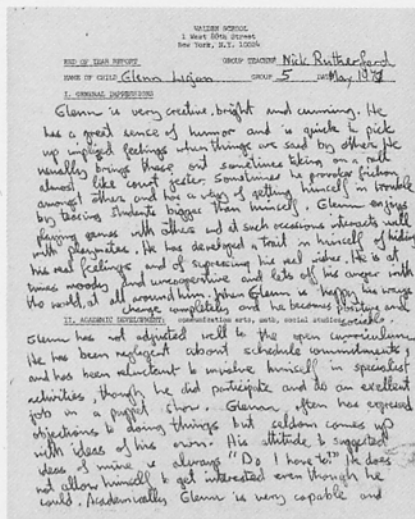 WALDEN SCHOOL
1 West 88th Street
New York, N.Y. 10024
END OF YEAR REPORT GROUP TEACHER Nick Rutherford
NAME OF CHILD Glenn Lujan GROUP 5 DATE May 1971
I. GENERAL IMPRESSIONS
Glenn is very creative, bright and cunning. He
has a great sense of humor and is quick to pick
up implied feelings when things are said by others. He
usually brings these out sometimes taking on a roll
almost like court jester. Sometimes he provokes friction
amongst others and has a way of getting himself in trouble
by teasing students bigger than himself. Glenn enjoys
playing games with others and at such occasions interacts well
with playmates. He has developed a trait in himself of hiding
his real feelings and of supressing his real wishes. He is at
times moody and uncooperative and lets off his anger into
the world, at all around him. When Glenn is happy his ways
change completely and he becomes positive and
II. ACADEMIC DEVELOPMENT: communication arts, math, social studies sociable.
Glenn has not adjusted well to the open curriculum.
He has been negligent about schedule commitments,
and has been reluctant to involve himself in specialist
activities, though he did participate and do an excellent
job on a puppet show. Glenn, often has expressed
objections to doing things but seldom comes up
with ideas of his own. His attitude to suggested
ideas of mine is always "Do I have to?" He does
not allow himself to get interested even though he
could. Academically Glenn is very capable and